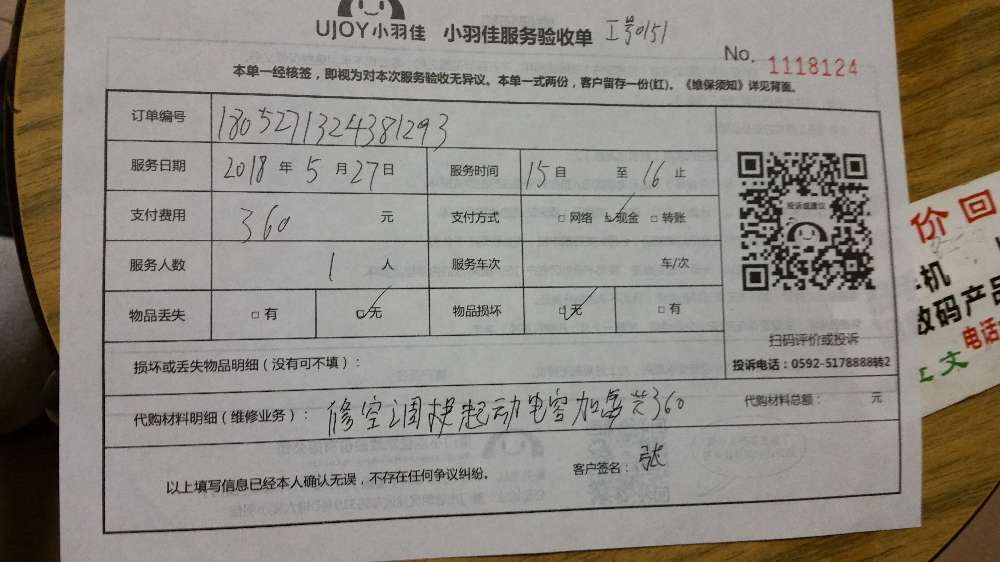 UJOY小羽佳 小羽佳服务验收单 工号0151
No. 1118124
本单一经核签，即视为对本次服务验收无异议。本单一式两份，客户留存一份(红)。《维保须知》详见背面。
订单编号 1805271324381293
服务日期 2018 年 5 月 27 日 服务时间 15 自 至 16 止
支付费用 360 元 支付方式 □网络 ☑现金 □转账
服务人数 1 人 服务车次 车/次
物品丢失 □有 ☑无 物品损坏 ☑无 □有
投诉或建议
扫码评价或投诉
投诉电话：0592-5178888转2
损坏或丢失物品明细（没有可不填）：
代购材料明细（维修业务）： 修空调换起动电容加 360 代购材料总额： 元
以上填写信息已经本人确认无误，不存在任何争议纠纷。 客户签名： 张
价回
机
数码产品
电话
文